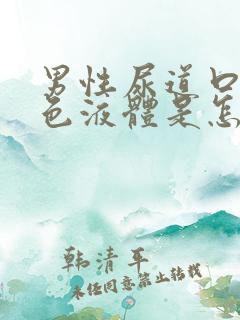 男性尿道口
色液體是怎
韩清平
未经同意禁止转载